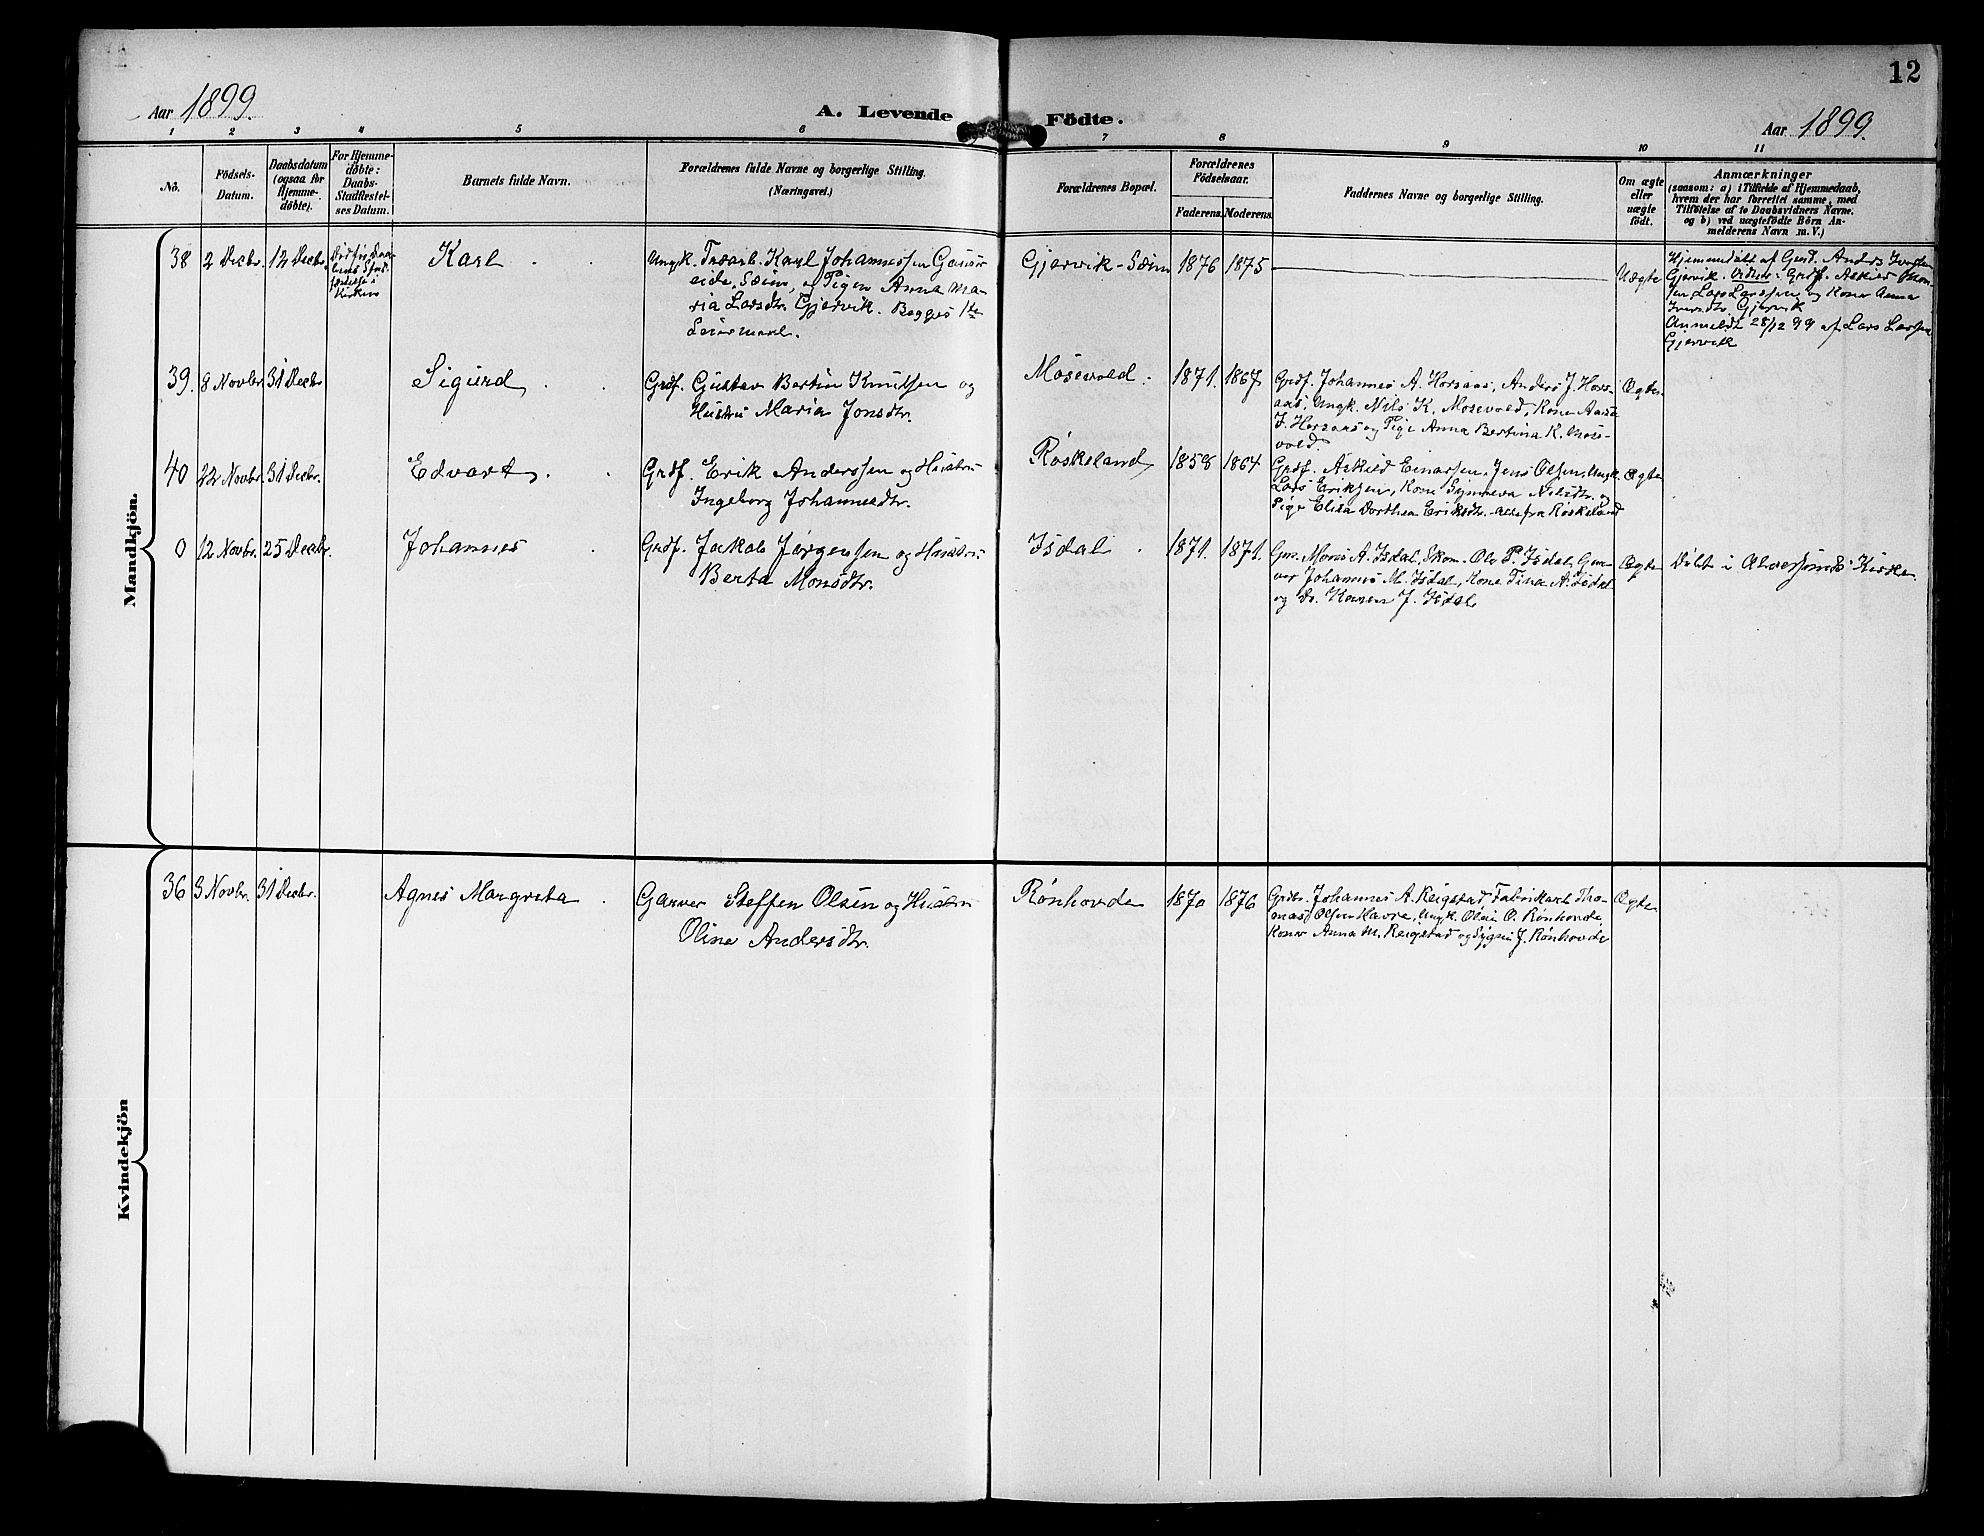 12
Aar 1899.
A. Levende Födte.
Aar 1899.
1 2 3 4 5 6 7 8 9 10 11
No.
Födsels-
Datum.
Daabsdatum
(ogsaa for
Hjemme-
döbte).
For Hjemme-
döbte:
Daabs-
Stadfæstel-
ses Datum.
Barnets fulde Navn.
Forældrenes fulde Navne og borgerlige Stilling.
(Næringsvei.)
Forældrenes Bopæl.
Forældrenes
Födselsaar.
Faderens.
Moderens.
Faddernes Navne og borgerlige Stilling.
Om ægte
eller
uægte
født.
Anmærkninger
(saasom: a) i Tilfælde af Hjemmedaab,
hvem der har forrettet samme, med
Tilföielse af to Daabsvidners Navne,
og b) ved uægtefödte Börn An-
melderens Navn m. V.)
Mandkjön.
38
2 Decbr.
12 Decbr.
Død før Daa-
bens Stad-
fæstelse i
Kirken
Karl
Ungk. Træarb. Karl Johannessen
eide, Sæim, og Pigen Anna Ma-
ria Larsdtr. Gjervik. Begges 1ste
Leiermaal.
Gjervik - Sæim
1876
1875
Uægte
Hjemmedöbt af Gmd. Anders
Gjervik. Vidner: Grdf. Askild Mon-
sen Lars Larssen og Kone Anna
Gjervik
Anmeldt 28/12 99 af Lars Larssen
Gjervik
39.
8 Novbr.
31 Decbr.
Sigurd
Grdf. Gustav Bertin Knudsen og
Hustru Maria Jonsdtr.
Mosevold.
1871.
1867
Grdf. Johannes A. Horsaas, Anders J. Hors-
aas, Ungk. Nils K. Mosevold, Kone
J. Horsaas og Pige Anna Bertina K. Mose-
vold.
Ægte.
40
22 Novbr.
31 Decbr.
Edvart
Grdf. Erik Anderssen og Hustru
Ingeborg Johannesdtr.
Roskeland
1858
1864
Grdf. Askild Einarsen, Jens Olsen, Ungk.
Lars Eriksen, Kone Synneva Nilsdtr. og
Pige Elisa Dorthea Eriksdtr. alle fra Roskeland
Ægte
0
12 Novbr.
25 Decbr.
Johannes
Grdf. Jakob Jørgenssen og Hustru
Berta Monsdtr.
Isdal
1871.
1871.
Gar. Mons A. Isdal, Skom. Ole P. Isdal, Gar-
ver Johannes M. Isdal, Kone Tina A. Isdal
og Do. Karen J. Isdal
Ægte
Döbt i Alversunds Kirke.
Kvindekjön
36
3 Novbr.
31 Decbr.
Agnes Margreta
Garver Steffen Olsen og Hustru
Oline Andersdtr.
Rønhovde
1870
1876
Grdbr. Johannes A. Reigstad, Fabrikarb. Tho-
mas Olsen Havre, Ungk. Olai O. Rønhovde
Koner Anna M. Reigstad og J. Rønhovde
Ægte